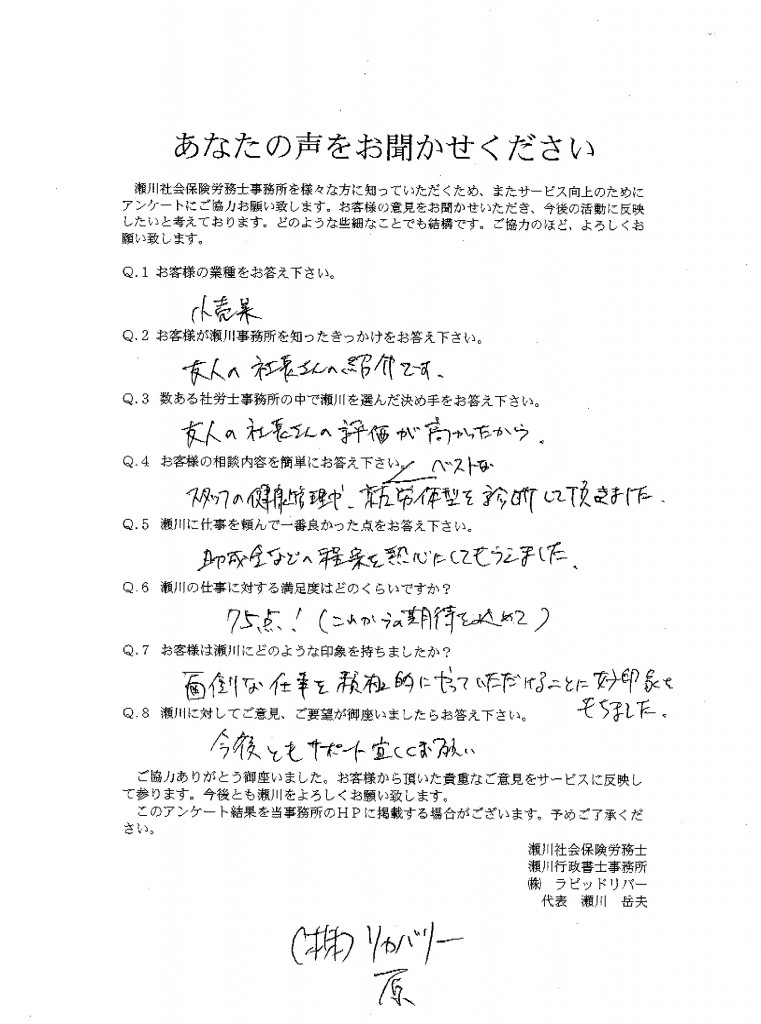 あなたの声をお聞かせください
瀬川社会保険労務士事務所を様々な方に知っていただくため、またサービス向上のために
アンケートにご協力お願い致します。お客様の意見をお聞かせいただき、今後の活動に反映
したいと考えております。どのような些細なことでも結構です。ご協力のほど、よろしくお
願い致します。
Q.1 お客様の業種をお答え下さい。
小売業
Q.2 お客様が瀬川事務所を知ったきっかけをお答え下さい。
友人の社長さんの紹介です、
Q.3 数ある社労士事務所の中で瀬川を選んだ決め手をお答え下さい。
友人の社長さんの評価が高かったから、
Q.4 お客様の相談内容を簡単にお答え下さい。
ベストな
スタッフの健康管理や、就労体型を診断して頂きました、
Q.5 瀬川に仕事を頼んで一番良かった点をお答え下さい。
助成金などへ提案を熱心にしてもらえました、
Q.6 瀬川の仕事に対する満足度はどのくらいですか?
75点!(これからの期待を込めて)
Q.7 お客様は瀬川にどのような印象を持ちましたか?
面倒な仕事を積極的にやっていただけることに好印象を
もちました。
Q.8 瀬川に対してご意見、ご要望が御座いましたらお答え下さい。
今後ともサポート宜しくお願い
ご協力ありがとう御座いました。お客様から頂いた貴重なご意見をサービスに反映し
て参ります。今後とも瀬川をよろしくお願い致します。
このアンケート結果を当事務所のHPに掲載する場合がございます。予めご了承くだ
さい。
瀬川社会保険労務士
瀬川行政書士事務所
㈱ ラピッドリバー
代表 瀬川 岳夫
(株)リカバリー
原